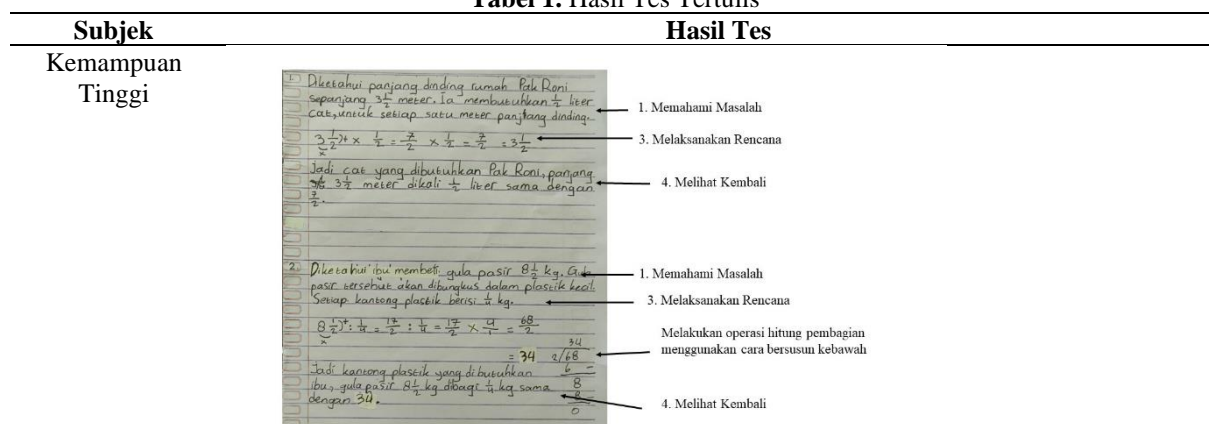 Tabel 1. Hasil Tes Tertulis
Subjek Hasil Tes
Kemampuan
Tinggi
1. Diketahui panjang dinding rumah Pak Roni
sepanjang 3 1/2 meter. Ia membutuhkan 1/2 liter
cat, untuk setiap satu meter panjang dinding.
3 1/2 × 1/2 = 7/2 × 1/2 = 7/2 = 3 1/2
Jadi cat yang dibutuhkan Pak Roni, panjang
3 1/2 meter dikali 1/2 liter sama dengan
7/2.
1. Memahami Masalah
3. Melaksanakan Rencana
4. Melihat Kembali
2. Diketahui ibu membeli gula pasir 8 1/2 kg. Gula
pasir tersebut akan dibungkus dalam plastik kecil.
Setiap kantong plastik berisi 1/4 kg.
8 1/2 : 1/4 = 17/2 : 1/4 = 17/2 × 4/1 = 68/2
= 34
34
2/68
6 -
8
8 -
0
Jadi kantong plastik yang dibutuhkan
ibu, gula pasir 8 1/2 kg dibagi 1/4 kg sama
dengan 34.
1. Memahami Masalah
3. Melaksanakan Rencana
Melakukan operasi hitung pembagian
menggunakan cara bersusun kebawah
4. Melihat Kembali